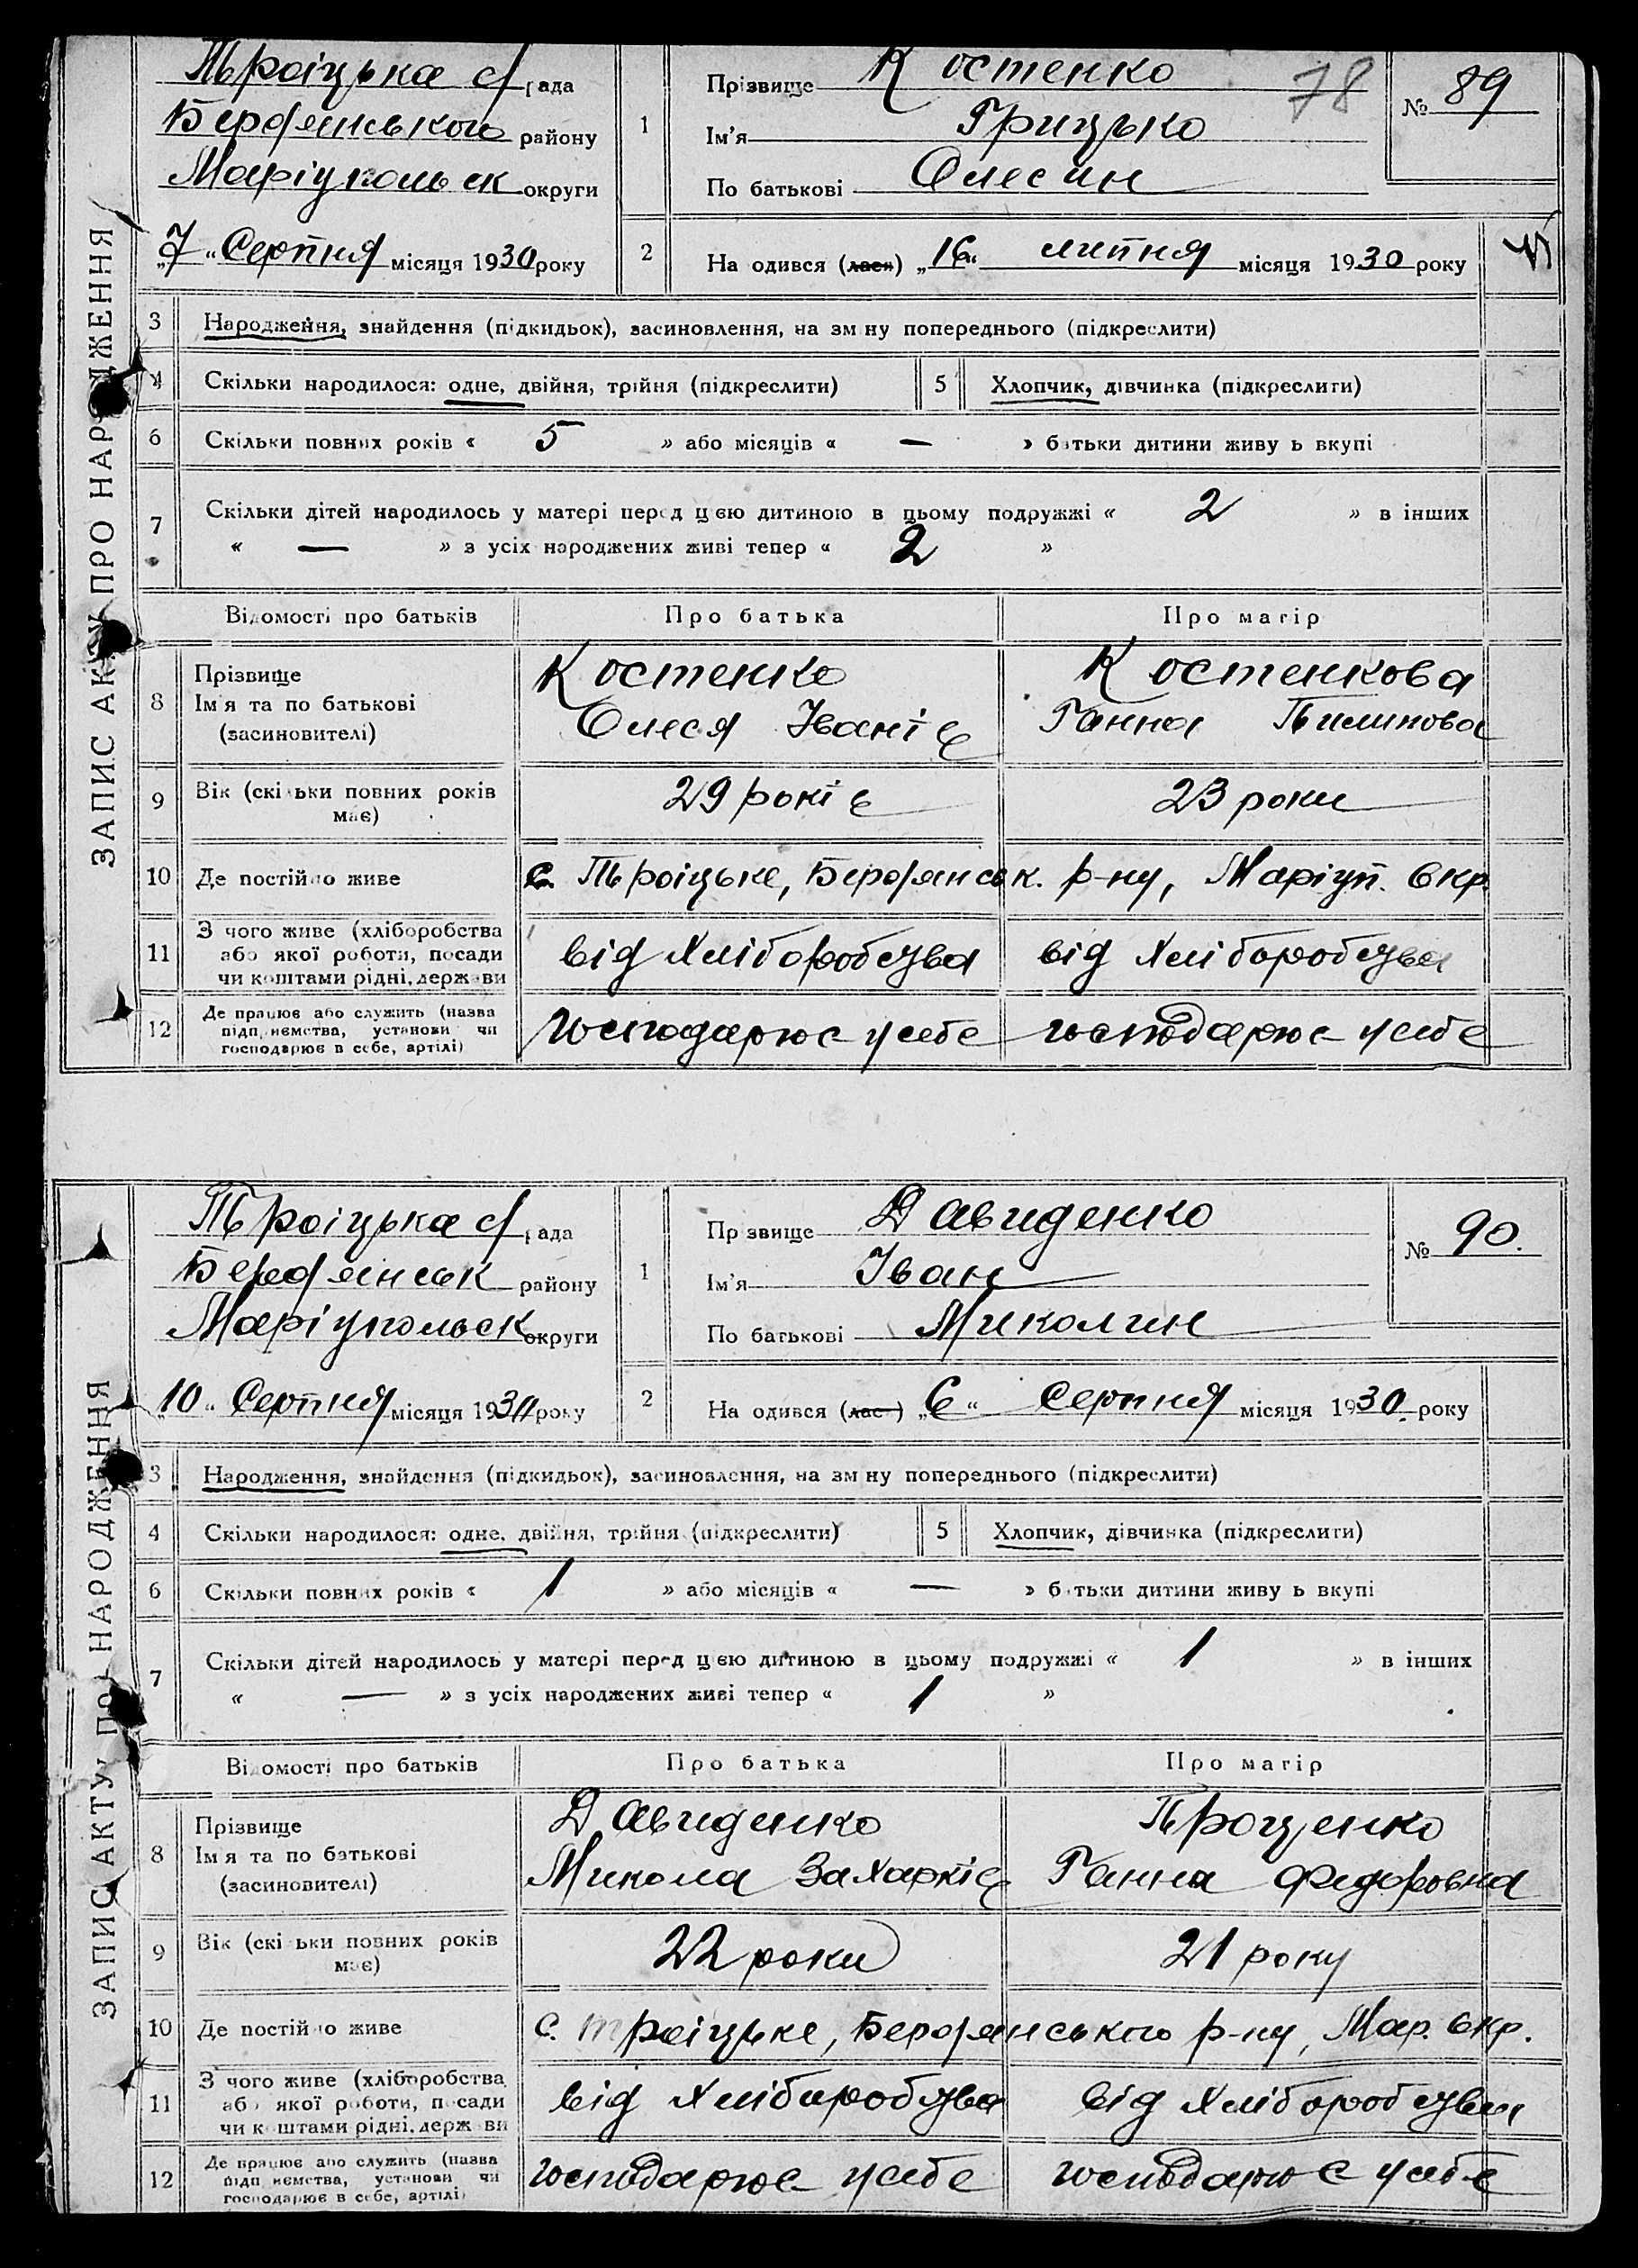 ЗАПИС АКТУ ПРО НАРОДЖЕННЯ
Троіцька с/рада
Бердянського району
Маріупольськ округи
„7“ Серпня місяця 1930 року
1
Прізвище Костенко
Ім'я Грицько
По батькові Олесин
78
№ 89
2
На одився (лася) „16“ липня місяця 1930 року
3 Народження, знайдення (підкидьок), засиновлення, на зм ну попереднього (підкреслити)
4 Скільки народилося: одне, двійня, трійня (підкреслити) 5 Хлопчик, дівчинка (підкреслити)
6 Скільки повних років « 5 » або місяців « — » батьки дитини живу ь вкупі
7 Скільки дітей народилось у матері перед цією дитиною в цьому подружжі « 2 » в інших
« — » з усіх народжених живі тепер « 2 »
Відомості про батьків Про батька Про матір
8 Прізвище
Ім'я та по батькові
(засиновителі)
Костенко
Олеся Іванів
Костенкова
Ганна Пилипова
9 Вік (скільки повних років
має)
29 років
23 роки
10 Де постійно живе с. Троіцьке, Бердянськ. р-ну, Маріуп. Окр.
11 З чого живе (хліборобства
або якої роботи, посади
чи коштами рідні, держави
від хліборобства
від хліборобства
12 Де працює або служить (назва
підприємства, установи чи
господарює в себе, артілі)
господарює у себе
господарює у себе
ЗАПИС АКТУ ПРО НАРОДЖЕННЯ
Троіцька с/рада
Бердянськ району
Маріупольськ округи
„10“ Серпня місяця 1930 року
1
Пр звище Давиденко
Ім'я Іван
По батькові Миколин
№ 90.
2
На одився (лас ) „6“ Серпня місяця 1930. року
3 Народження, знайдення (підкидьок), засиновлення, на зм ну попереднього (підкреслити)
4 Скільки народилося: одне, двійня, трійня (підкреслити) 5 Хлопчик, дівчинка (підкреслити)
6 Скільки повних років « 1 » або місяців « — » батьки дитини живу ь вкупі
7 Скільки дітей народилось у матері перед цією дитиною в цьому подружжі « 1 » в інших
« — » з усіх народжених живі тепер « 1 »
Відомості про батьків Про батька Про матір
8 Прізвище
Ім'я та по батькові
(засиновителі)
Давиденко
Микола Захарків
Проценко
Ганна Федоровна
9 Вік (скільки повних років
має)
22 роки
21 року
10 Де постійно живе с. Троіцьке, Бердянського р-ну, Мар. Окр.
11 З чого живе (хліборобства
або якої роботи, посади
чи коштами рідні, держави
від хліборобства
від хліборобства
12 Де працює або служить (назва
підприємства, установи чи
господарює в себе, артілі)
господарює у себе
господарює у себе